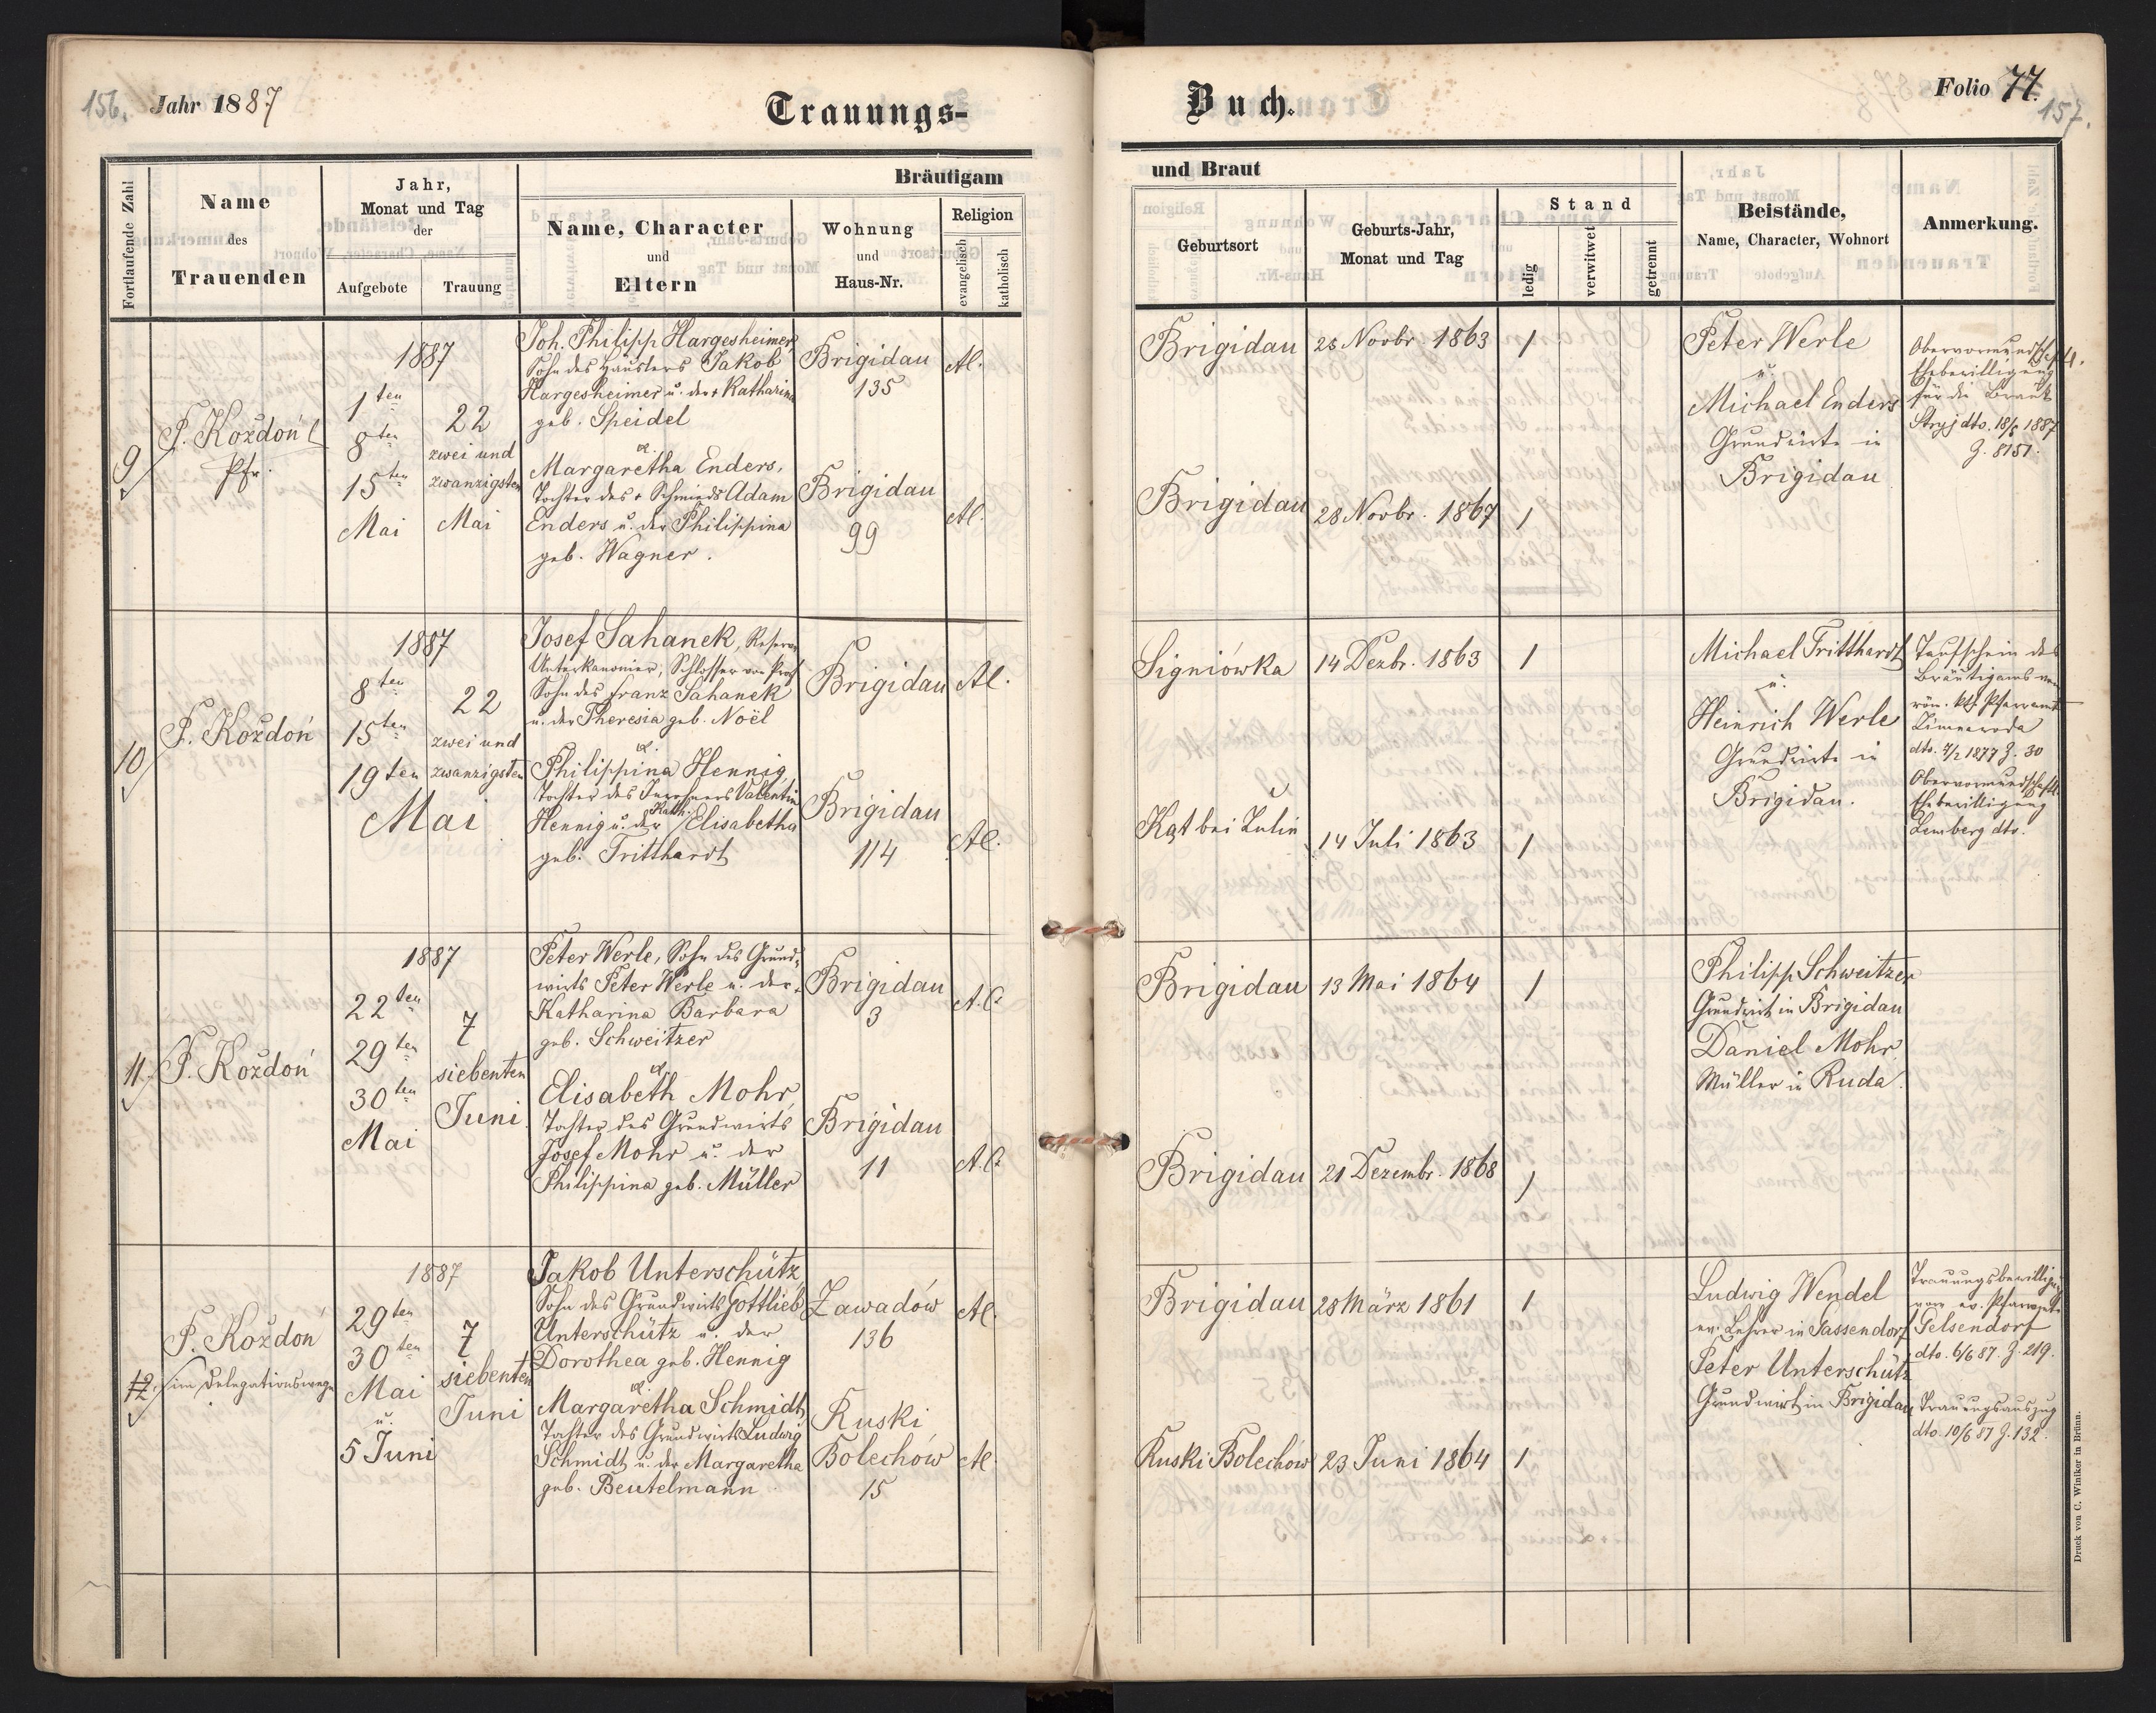 156.
Jahr 1887
Trauungs-
Fortlaufende Zahl
Name
des
Trauenden
Jahr,
Monat und Tag
der
Aufgebote
Trauung
Bräutigam
Name, Character
und
Eltern
Wohnung
und
Haus-Nr.
Religion
evangelisch
katholisch
9
P. Koždoń
Pfr.
1887
1ten
8ten
15ten
Mai
22
zwei und
zwanzigsten
Mai
Joh. Philipp Hargesheimer,
Sohn des Häuslers Jakob
Hargesheimer u. der + Katharina
geb. Speidel
&
Margaretha Enders,
Tochter des + Schmieds Adam
Enders u. der Philippina
geb. Wagner.
Brigidau
135
Brigidau
99
AC.
AC.
10
P. Koždoń
1887
8ten
15ten
19ten
Mai
22
zwei und
zwanzigsten
Josef Sahanek, Reserve
Unterkanonier, Schlosser von Prof
Sohn des Franz Sahanek
u. der Theresia geb. Noël
&
Philippina Hennig,
Tochter des Inwohners Valentin
Hennig u. der Kath. Elisabetha
geb. Tritthardt
Brigidau
Brigidau
114
AC.
AC.
11.
P. Koždoń
1887
22ten
29ten
30ten
Mai
7
siebenten
Juni.
Peter Werle, Sohn des Grund-
wirts Peter Werle u. der +
Katharina Barbara
geb. Schweitzer
&
Elisabeth Mohr,
Tochter des Grundwirts
Josef Mohr u. der
Philippina geb. Müller
Brigidau
3
Brigidau
11
A.C.
A.C.
12.
P. Koždoń
im Delegationswege
1887
29ten
30ten
Mai
u.
5 Juni
7
siebenten
Juni
Jakob Unterschütz,
Sohn des Grundwirts Gottlieb
Unterschütz u. der
Dorothea geb. Hennig
&
Margaretha Schmidt,
Tochter des Grundwirts Ludwig
Schmidt u. der Margaretha
geb. Beutelmann
Zawadów
136
Ruski
Bolechów
15
AC.
AC.
Buch.
Folio 77.
157.
und Braut
Geburtsort
Geburts-Jahr,
Monat und Tag
Stand
ledig
verwitwet
getrennt
Beistände,
Name, Character, Wohnort
Anmerkung.
Brigidau
Novbr. 1863
1
Brigidau
28 Novbr. 1867
1
Peter Werle
u.
Michael Enders
Grundwirte in
Brigidau
Obervormundschaftl.
Ehebewilligung
für die Braut
Stryj dto. 18/5 1887
Z. 8151.
Signiówka
14 Dezbr. 1863
1
Kąt bei
14 Juli 1863
1
Michael Tritthardt
u.
Heinrich Werle
Grundwirte in
Brigidau.
Taufschein des
Bräutigams vom
röm. kth. Pfarramt
Zimnawoda
1877 Z. 30
Obervormundschaftl.
Ehebewilligung
Lemberg dto.
Brigidau
13 Mai 1864
1
Brigidau
21 Dezembr. 1868
1
Philipp Schweitzer
Grundwirt in Brigidau
Daniel Mohr
Müller in Ruda.
Brigidau
28 März 1861
1
Ruski Bolechów
23 Juni 1864
1
Ludwig Wendel
ev. Lehrer in Gassendorf
Peter Unterschütz
Grundwirt in Brigidau
Trauungsbewilligung
vom ev. Pfarramte
Gelsendorf
dto. 6/6 87. Z. 219.
Trauungsauszug
dto. 10/6 87 Z. 132.
Druck von C. Winiker in Brünn.